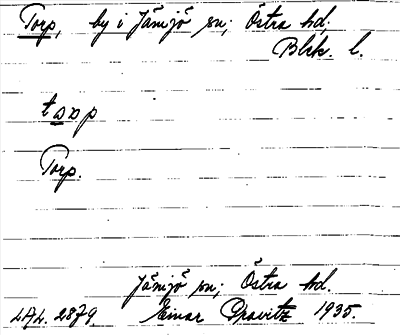 Torp, by i Jämjö sn; Östra hd.
Blek. l.
tɔrp
Torp.
Jämjö sn; Östra hd.
LAL. 2879 Einar Dravitz 1935.